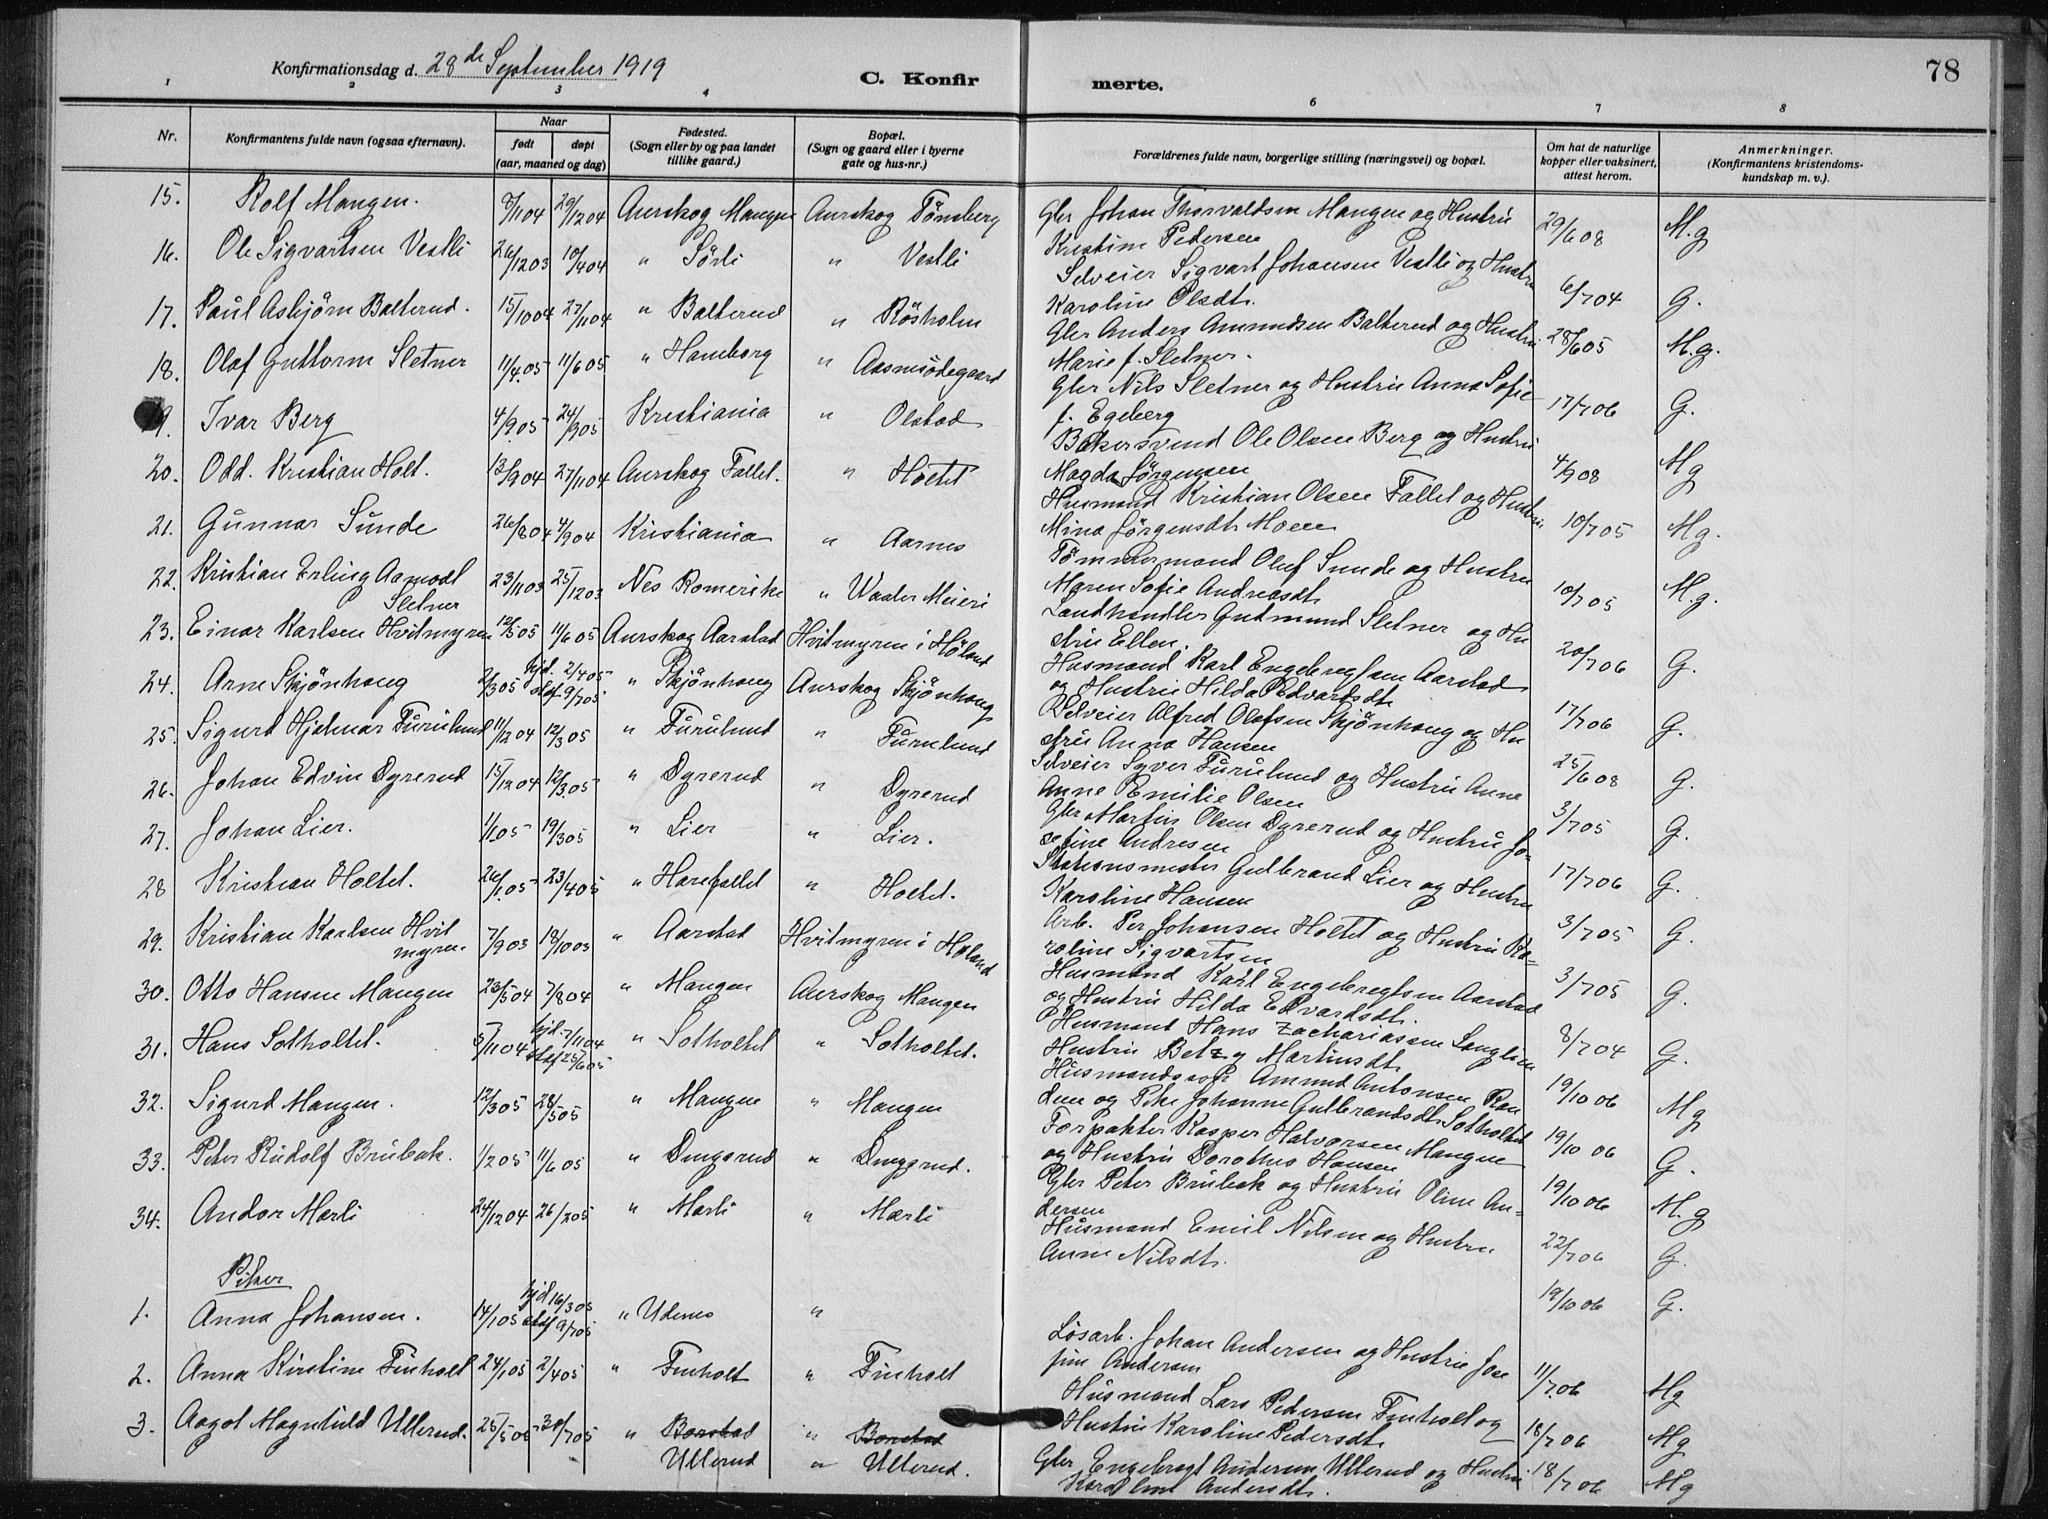 Konfirmationsdag d. 28de September 1919
C. Konfir
merte.
78
1 2 3 4 6 7 8
Nr.
Konfirmantens fulde navn (ogsaa efternavn).
Naar
født
døpt
(aar, maaned og dag)
Fødested.
(Sogn eller by og paa landet
tillike gaard.)
Bopæl.
(Sogn og gaard eller i byerne
gate og hus-nr.)
Forældrenes fulde navn, borgerlige stilling (næringsvei) og bopæl.
Om hat de naturlige
kopper eller vaksinert,
attest herom.
Anmerkninger.
(Konfirmantens kristendoms-
kundskap m. v.).
15. Rolf Mangen. 8/11 04 29/12 04 Aurskog Mangen Aurskog Tönsberg
16. Ole Sigvartsen Vestli 26/12 03 10/4 04 " Sörli " Vestli
17. Paul Asbjörn Balterud. 15/10 04 27/11 04 " Balterud " Rösholm
18. Olaf Guttorm Sletner 11/4.05 11/6 05 " Hamborg " Aasmsödegaard
19. Ivar Berg 4/9.05 24/9 05 Kristiania " Olstad
20. Odd. Kristian Holt. 13/9 04 27/11 04 Aurskog Fallet. " Holtet
21. Gunnar Sunde 26/8 04 4/9 04 Kristiania " Aarnes
22. Kristian Erling Aamodt
Sletner 23/11 03 25/12 03 Nes Romerike " Waaler Meieri
23. Einar Karlsen Hvitmyren 12/5 05 11/6 05 Aurskog Aarstad Hvitmyren i Höland
24. Arne Skjönhaug 2/3 05 hjd. 2/4 05
staf. 9/7 05 " Skjönhaug Aurskog Skjönhaug
25. Sigurd Hjalmar Furulund 11/12 04 12/3 05 " Furulund " Furulund
26. Johan Edvin Dyrerud 15/12 04 12/3.05 " Dyrerud " Dyrerud
27. Johan Lier. 1/1 05 19/3 05 " Lier " Lier.
28 Kristian Holtet. 26/1.05 23/4 05 " Harefallet " Holtet.
29. Kristian Karlsen Hvit
myren 7/9 03 18/10 03 " Aarstad Hvitmyren i Höland
30. Otto Hansen Mangen 23/5 04 7/8 04 " Mangen Aurskog Mangen
31. Hans Sotholtet. 5/11 04 hjd. 7/11 04
staf 25/6 05 " Sotholtet " Sotholtet.
32. Sigurd Mangen. 12/3 05 28/5 05 " Mangen " Mangen
33. Peter Rudolf Brubak. 1/2 05 11/6 05 " Dingsrud " Dingsrud.
34. Andor Mærli 24/12 04 26/2 05 " Mærli " Mærli
Piker
1. Anna Johansen. 14/1 05 hjd 16/3 05
staf 9/7 05 " Udenes "
2. Anna Kirstine Finholt 24/1 05 2/4 05 " Finholt " Finholt
3. Aagot Magnhild Ullerud. 25/5 05 30/7 05 " Borstad " Borstad
Ullerud " Ullerud.
Gbr Johan Thorvaldsen Mangen og Hustru
Kristine Pedersen 29/6 08 M.g
Selveier Sigvart Johansen Vestli og Hustru
Karoline Olsdt. 6/7 04 G.
Gbr Anders Amundsen Balterud og Hustru
Marie f. Sletner. 28/6 05 M.g.
Gbr Nils Sletner og Hustru Anna Sofie
f. Egeberg 17/7 06 G.
Bakersvend Ole Olsen Berg og Hustru
Magda Jørgensen 4/9 08 Mg
Husmand Kristian Olsen Fallet og Hustru
Mina Jørgensdt. Moen 10/7 05 Mg.
Tömmermand Oluf Sunde og Hustru
Maren Sofie Andreasdt. 10/7 05 M.g.
Landhandler Gudmund Sletner og Hu
stru Ellen. 20/7 06 G.
Husmand Karl Engebregtsen Aarstad
og Hustru Hilda Edvardsdt. 17/7 06 G.
Selveier Alfred Olafsen Skjönhaug og Hu
stru Anna Hansen 25/6 08 G.
Selveier Syver Furulund og Hustru Anne
Anne Emilie Olsen 3/7 05 G.
Gbr Martin Olsen Dyrerud og Hustru Jo-
sefine Andresen 17/7 06 G.
Stationsmester Gulbrand Lier og Hustru
Karoline Hansen 3/7 05 G.
Arb. Per Johansen Holtet og Hustru Ka-
roline Sigvartsen 3/7 05 G.
Husmand Karl Engebregtsen Aarstad
og Hustru Hilda Edvardsdt. 8/7 04 G.
Husmand Hans Zachariassen Langlien
Hustru Betzy Martinsdt. 19/10 06 Mg
Husmandssøn Amund Antonsen Ran
dem og Pike Johanne Gulbrandsdt. Sotholtet 19/10 06 G.
Forpakter Kasper Halvorsen Mangen
og Hustru Dorothea Hansen 19/10 06 M.g
Gbr Peter Brubek og Hustru Oline An-
dersen 22/7 06 G.
Husmand Emil Nilsen og Hustru
Anne Nilsdt. 19/10 06 G.
Løsarb. Johan Andersen og Hustru Jose
fine Andersen 11/7 06 Mg
Husmand Lars Pedersen Finholt og
Hustru Karoline Pedersdt. 18/7 06 Mg
Gbr Engebregt Andersen Ullerud og Hustru
Karoline Andersdt. 18/7 06 Mg